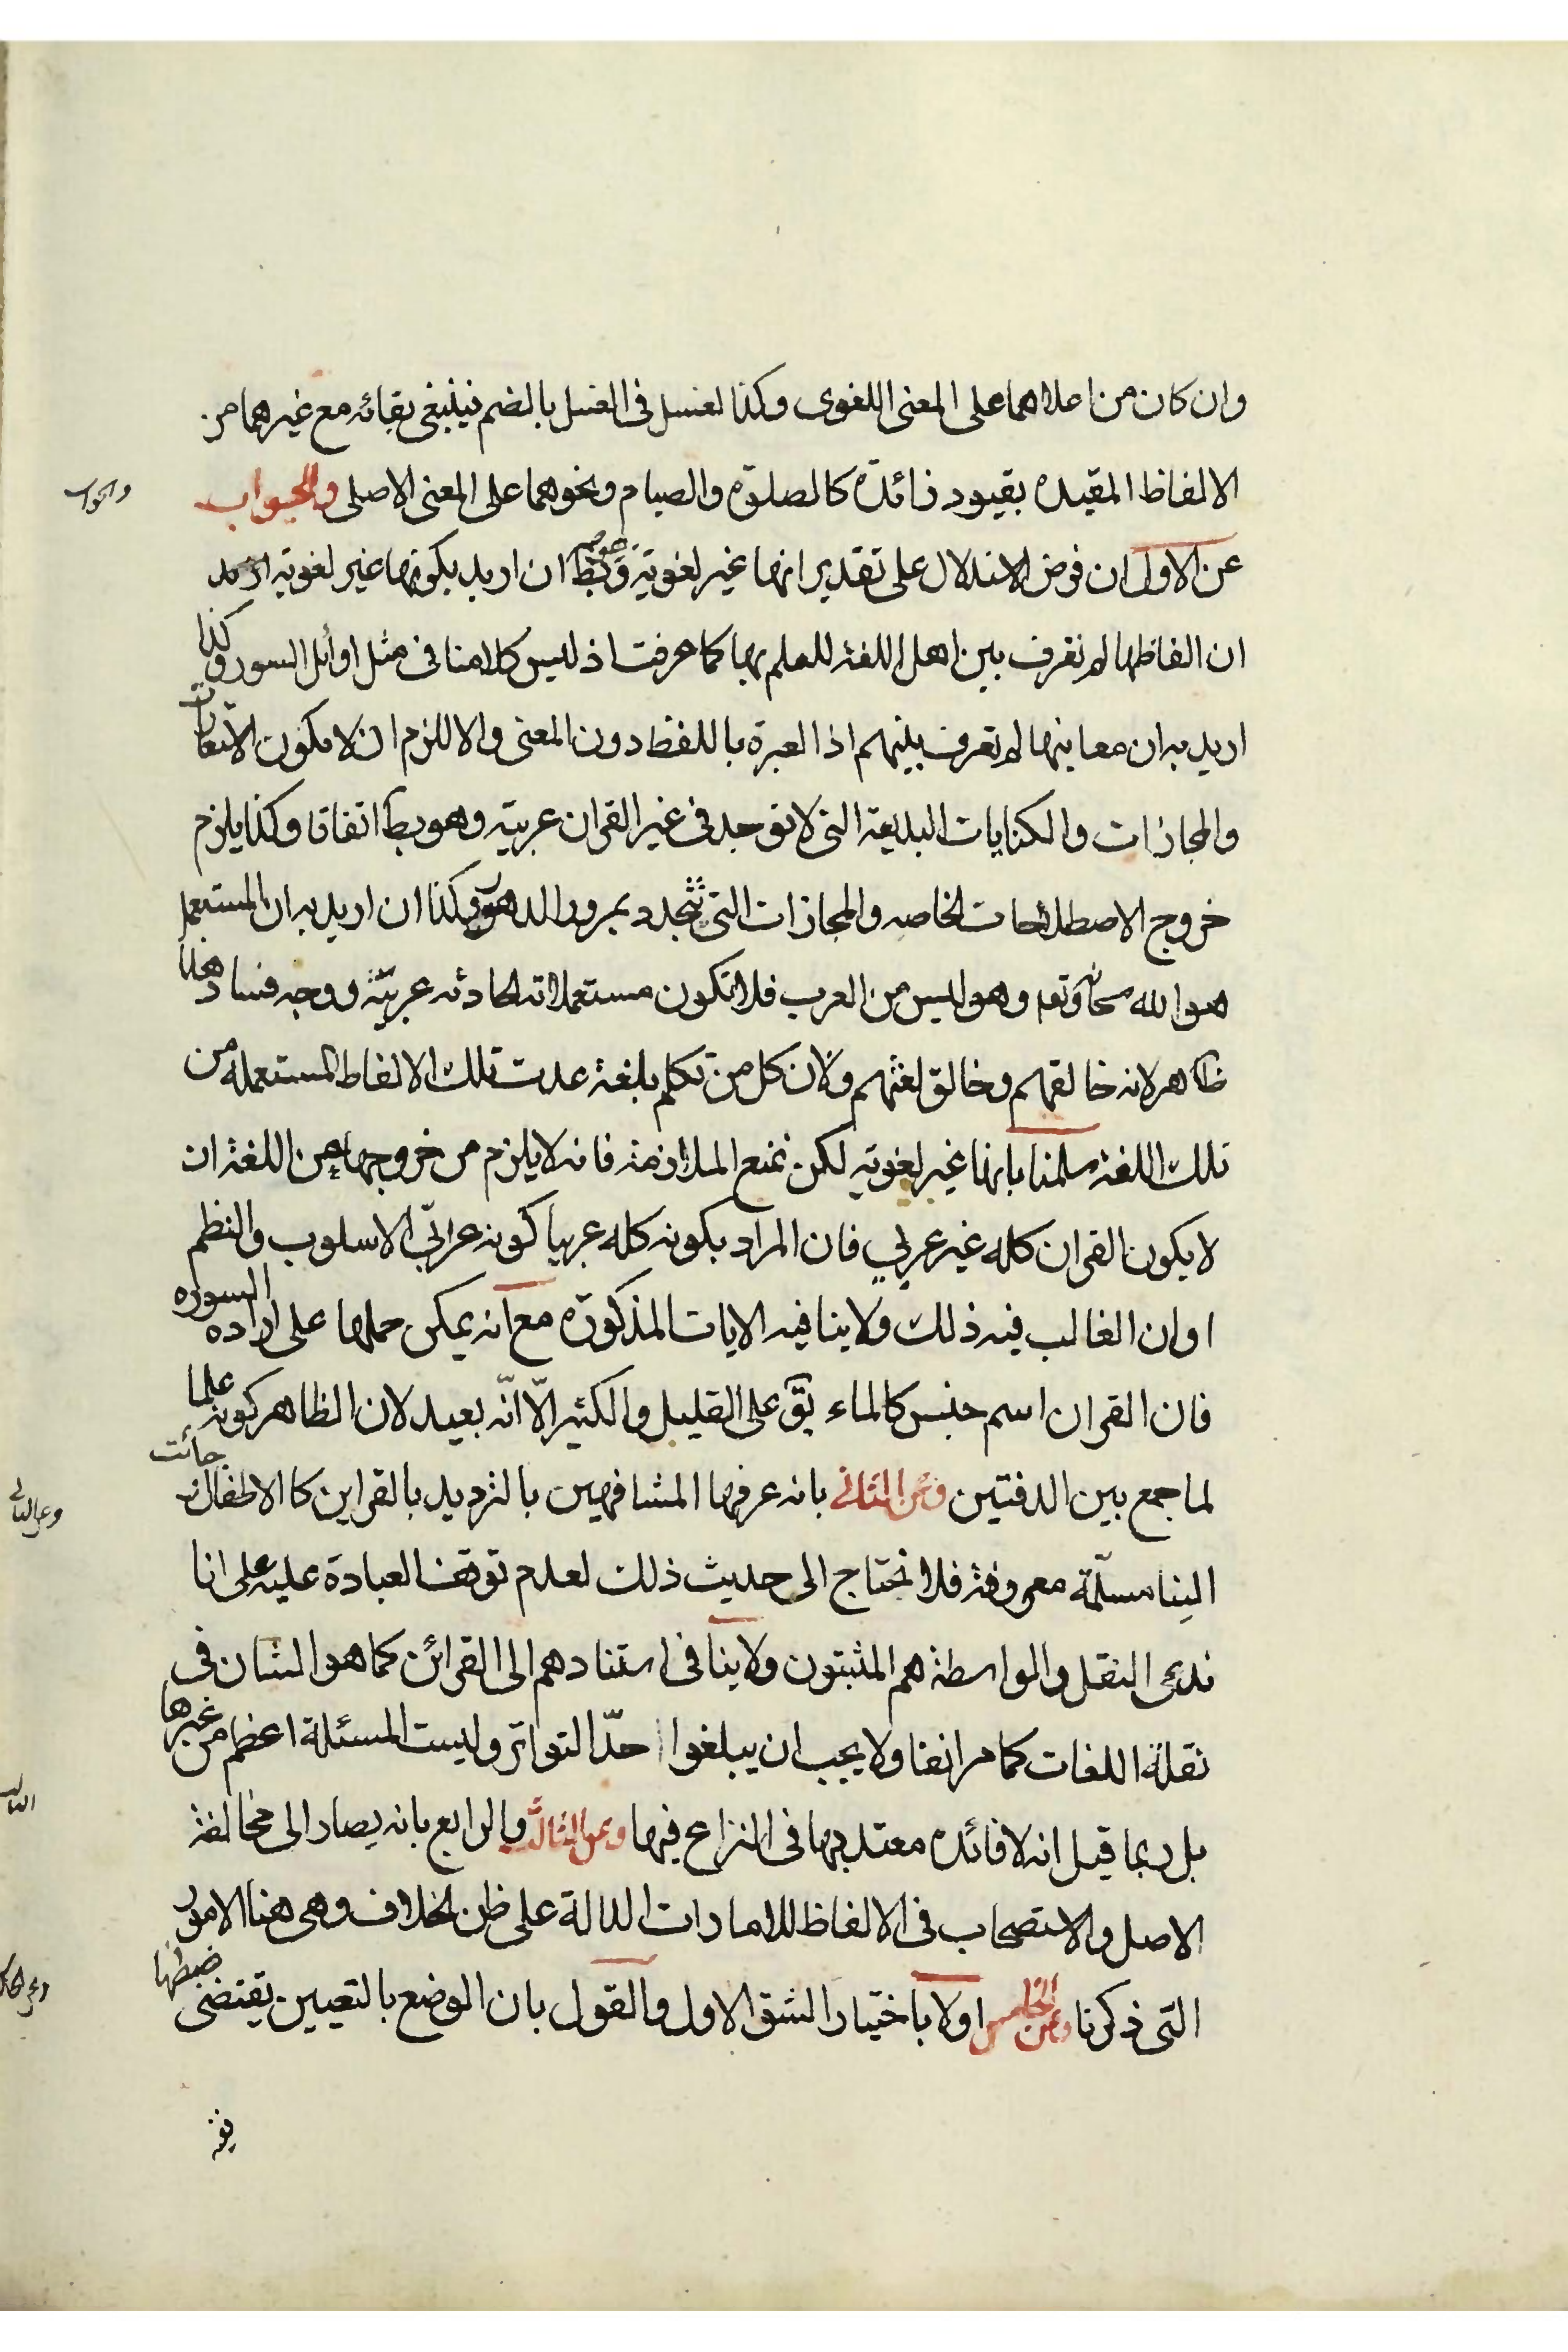 وان كان من اعلاهما على المعنى اللغوى وكذا لغسل فى الغسل بالضم فينبغى بقائه مع غيرهما من
الالفاظ المقيده بقيود زائدة كالصلوة والصيام ونحوهما على المعنى الاصلى والجواب
والجواب
عن الاول ان فرض الاستدلال على تقدير انها غير لغوية وهو بط ان اريد بكونها غير لغويه اريد
ان الفاظها لم تعرف بين اهل اللغة للعلم بها كما عرفت اذ ليس كلامنا فى مثل اوائل السور وكذا
اريد به ان معاينها لم تعرف بينهم اذا العبرة باللفظ دون المعنى والا للزم ان لا يكون الاستعارات
والمجازات والكنايات البديعة التى لا توجد فى غير القران عربيته وهو بط اتفاقا وكذا يلزم
خروج الاصطلاحات الخاصه والمجازات التى تتجدد بمرور الدهور وكذا ان اريد به ان المستعمل
هو الله سبحانه وتعه وهو ليس من العرب فلا تكون مستعملاته الحادثه عربيّة ووجه فساد هذا
ظاهر لانه خالقهم وخالق لغتهم ولان كل من تكلم بلغة عدت تلك الالفاظ المستعمله من
تلك اللغة سلمنا بانها غير لغويه لكن نمنع الملازمة فانه لا يلزم من خروجها من اللغة ان
لا يكون القران كله غير عربي فان المراد بكونه كله عربيا كونه عرابّى الاسلوب والنظم
او ان الغالب فيه ذلك ولا ينافيه الايات المذكورة مع انه يمكن حملها على اراده السوره
فان القران اسم جنس كالماء يق على القليل والكثير الّا انّه بعيد لان الظاهر كونه علما
لما جمع بين الدفتين وعن الثانى بانه عرفها المشافهين بالترديد بالقراين كالاطفال جائت
وعن الثانى
الينا مسلّمة معروفة فلا نحتاج الى حديث ذلك لعدم توقف العبادة عليه على انا
ندعى النقل والواسطة هم المثبتون ولا ينافى استنادهم الى القرائن كما هو الشان فى
نقلة اللغات كما مر انفا ولا يجب ان يبلغوا حدّ التواتر وليست المسئلة اعظم من غيرها
بل ربما قيل انه لا فائده معتد بها فى النزاع فيها وعن الثالث والرابع بانه يصار الى مخالفة
الثالث
الاصل والاستصحاب فى الالفاظ للامارات الدالة على ظن الخلاف وهى هنا الامور
التى ذكرنا وعن الخامس اولا باختيار الشق الاول والقول بان الوضع بالتعيين يقتضى ضبطها